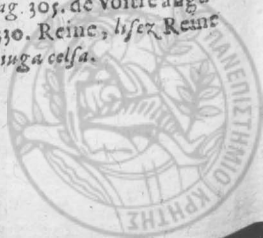 ag. 305. de Voſtre
330. Reine, liſez Reine
iuga celſa.
ΠΑΝΕΠΙΣΤΗΜΙΟ ΚΡΗΤΗΣ